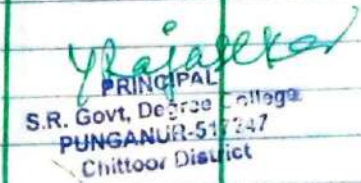 Y Rajasekar
PRINCIPAL
S.R. Govt, Degree College
PUNGANUR-517247
Chittoor District